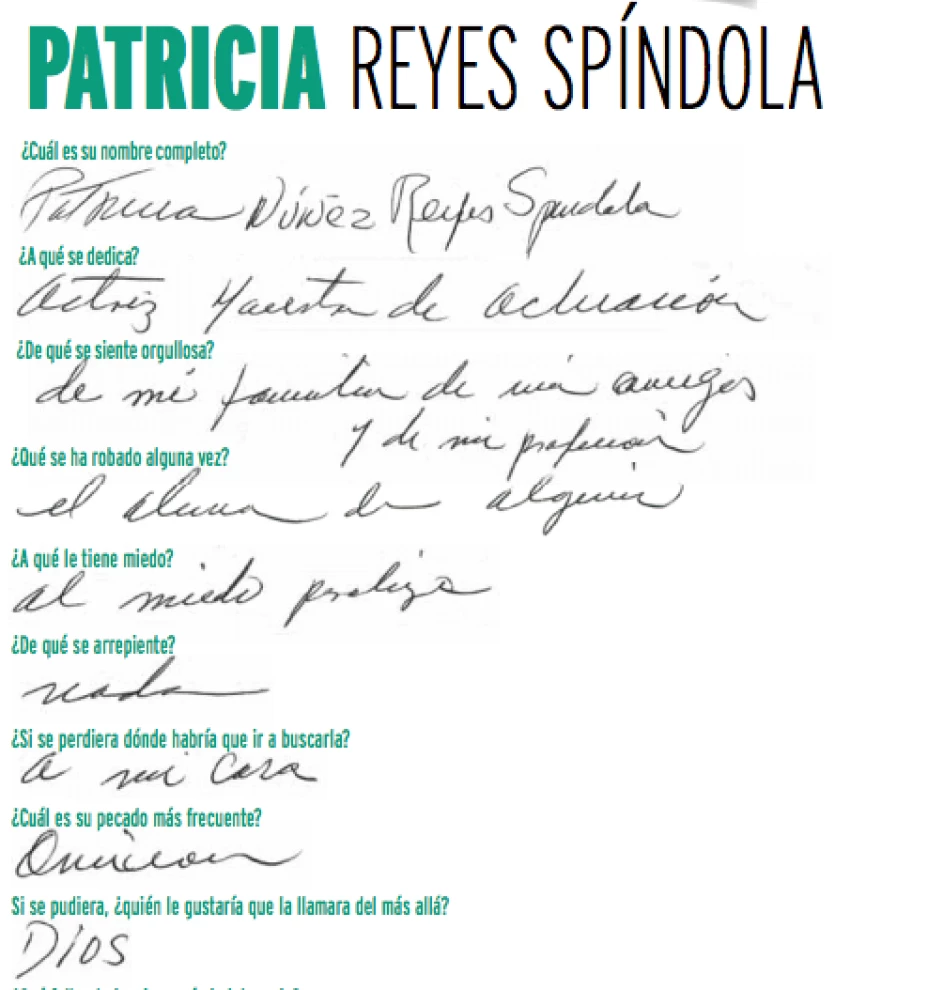 PATRICIA REYES SPÍNDOLA
¿Cuál es su nombre completo?
Patricia Núñez Reyes Spindola
¿A qué se dedica?
Actriz Maestra de actuación
¿De qué se siente orgullosa?
de mi familia de mis amigos
y de mi profesión
¿Qué se ha robado alguna vez?
el alma de alguien
¿A qué le tiene miedo?
al miedo
¿De qué se arrepiente?
nada
¿Si se perdiera dónde habría que ir a buscarla?
a mi casa
¿Cuál es su pecado más frecuente?
Si se pudiera, ¿quién le gustaría que la llamara del más allá?
Dios